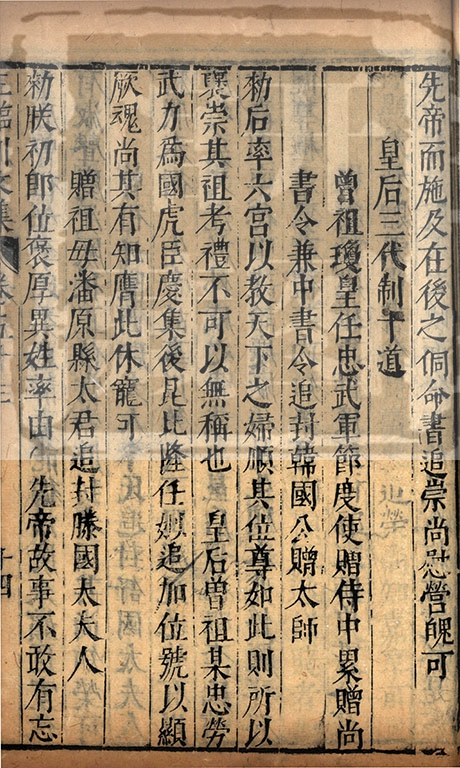 先帝而施及在後之侗命書追崇尚慰營魄可
皇后三代制十道
曾祖瓊皇任忠武軍節度使贈侍中累贈尚
書令兼中書令追封韓國公贈太師
勑后率六宮以敎天下之婦順其位尊如此則所以
襃崇其祖考禮不可以無稱也　皇后曽祖某忠勞
武力爲國虎臣慶集後昆比隆任姒追加位號以顯
厥魂尚其有知膺此休寵可
贈祖母潘原縣太君追封滕國太夫人
勑朕初卽位褒厚異姓率由　先帝故事不敢有忘
王臨川文集　卷五十三　十四